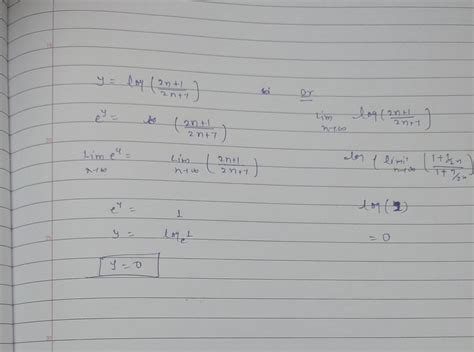 y = log (2n+1 / 2n+7)
e^y = (2n+1 / 2n+7)
Lim n→∞ e^y = Lim n→∞ (2n+1 / 2n+7)
e^y = 1
y = log_e 1
y = 0
Or
Lim n→∞ log (2n+1 / 2n+7)
log ( limit n→∞ (1+1/2n / 1+7/2n
log (1)
= 0